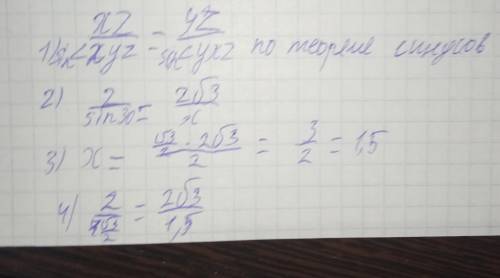 1) XZ / sin<XYZ = YZ / sin<YXZ по теореме синусов
2) 2 / sin30° = 2√3 / x
3) x = (√3/2 · 2√3) / 2 = 3/2 = 1,5
4) 2 / (√3/2) = 2√3 / 1,5